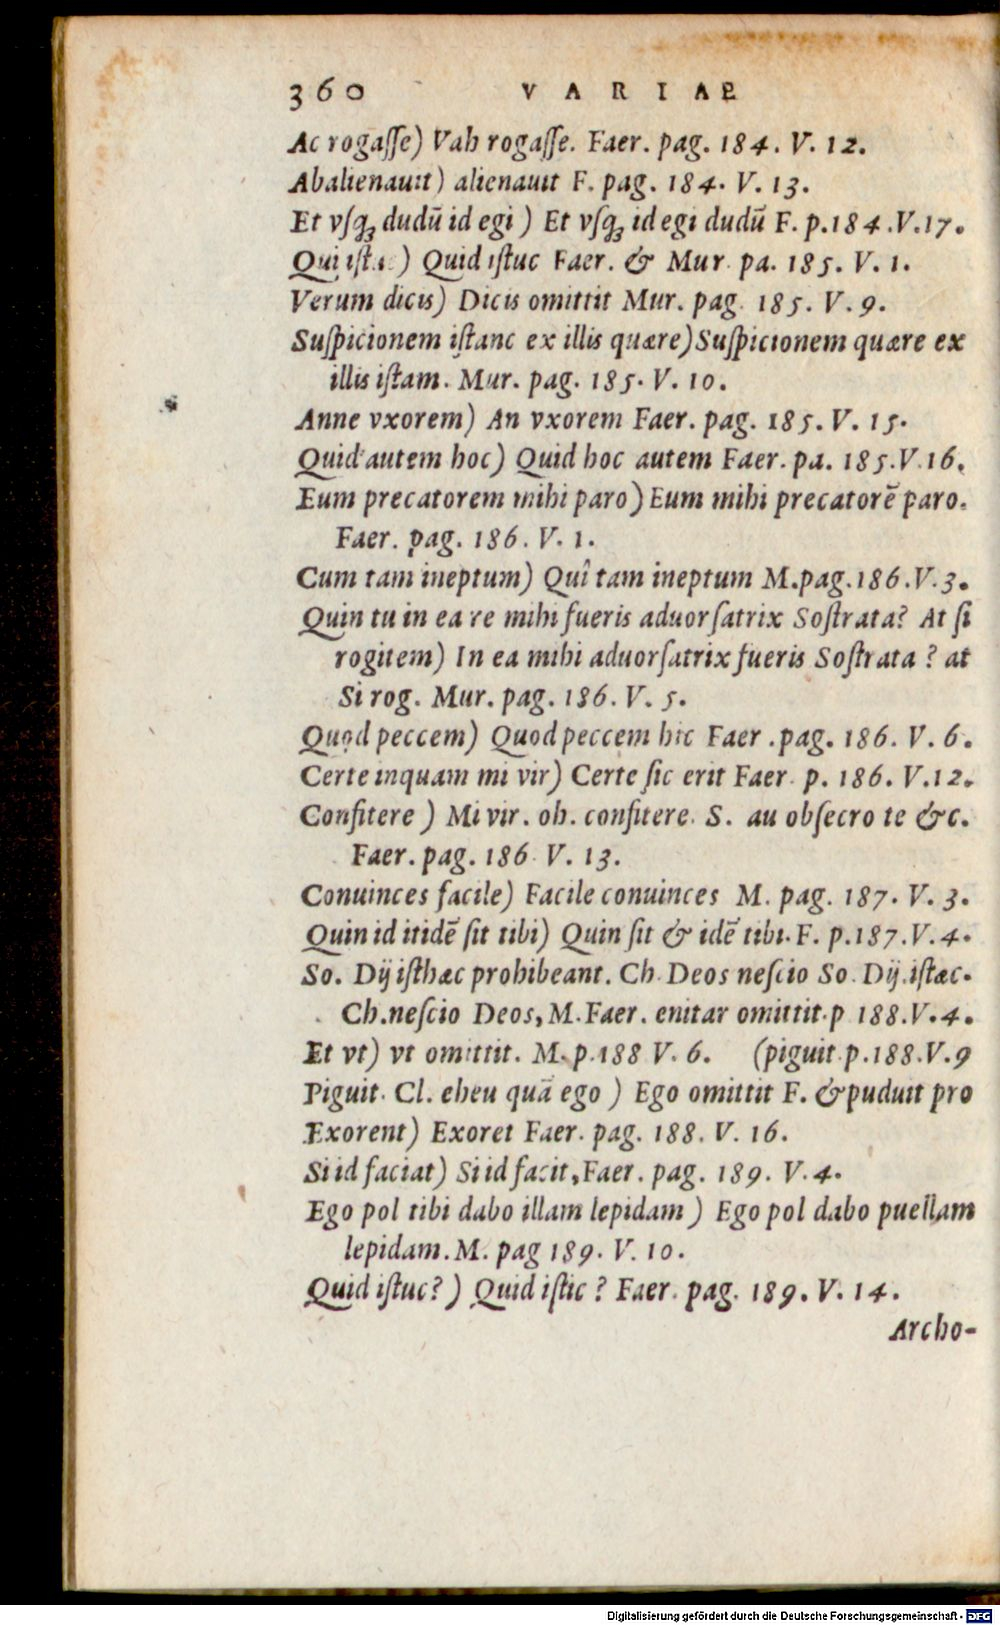 360 VARIAE
Ac rogaſſe) Vah rogaſſe. Faer. pag. 184. V. 12.
Abalienauit) alienauit F. pag. 184. V. 13.
Et vſq; dudū id egi) Et vſq; id egi dudū F. p.184.V.17.
Qui iſtuc) Quid iſtuc Faer. & Mur. pa. 185. V. 1.
Verum dicis) Dicis omittit Mur. pag. 185. V. 9.
Suſpicionem iſtanc ex illis quære) Suſpicionem quære ex
illis iſtam. Mur. pag. 185. V. 10.
Anne vxorem) An vxorem Faer. pag. 185. V. 15.
Quid autem hoc) Quid hoc autem Faer. pa. 185.V.16.
Eum precatorem mihi paro) Eum mihi precatorē paro.
Faer. pag. 186. V. 1.
Cum tam ineptum) Quî tam ineptum M.pag.186.V.3.
Quin tu in ea re mihi fueris aduorſatrix Soſtrata? At ſi
rogitem) In ea mihi aduorſatrix fueris Soſtrata? at
Si rog. Mur. pag. 186. V. 5.
Quod peccem) Quod peccem hic Faer. pag. 186. V. 6.
Certe inquam mi vir) Certe ſic erit Faer. p. 186. V.12.
Confitere) Mi vir. oh. confitere. S. au obſecro te &c.
Faer. pag. 186. V. 13.
Conuinces facile) Facile conuinces M. pag. 187. V. 3.
Quin id itidē ſit tibi) Quin ſit & idē tibi. F. p.187.V.4.
So. Dij iſthæc prohibeant. Ch. Deos neſcio So. Dij. iſtæc.
Ch. neſcio Deos, M. Faer. enitar omittit. p 188.V.4.
Et vt) vt omittit. M. p. 188 V. 6. (piguit. p.188.V.9
Piguit. Cl. eheu quā ego) Ego omittit F. & puduit pro
Exorent) Exoret Faer. pag. 188. V. 16.
Si id faciat) Si id facit, Faer. pag. 189. V. 4.
Ego pol tibi dabo illam lepidam) Ego pol dabo puellam
lepidam. M. pag 189. V. 10.
Quid iſtuc?) Quid iſtic? Faer. pag. 189. V. 14.
Archo-
Digitalisierung gefördert durch die Deutsche Forschungsgemeinschaft - DFG